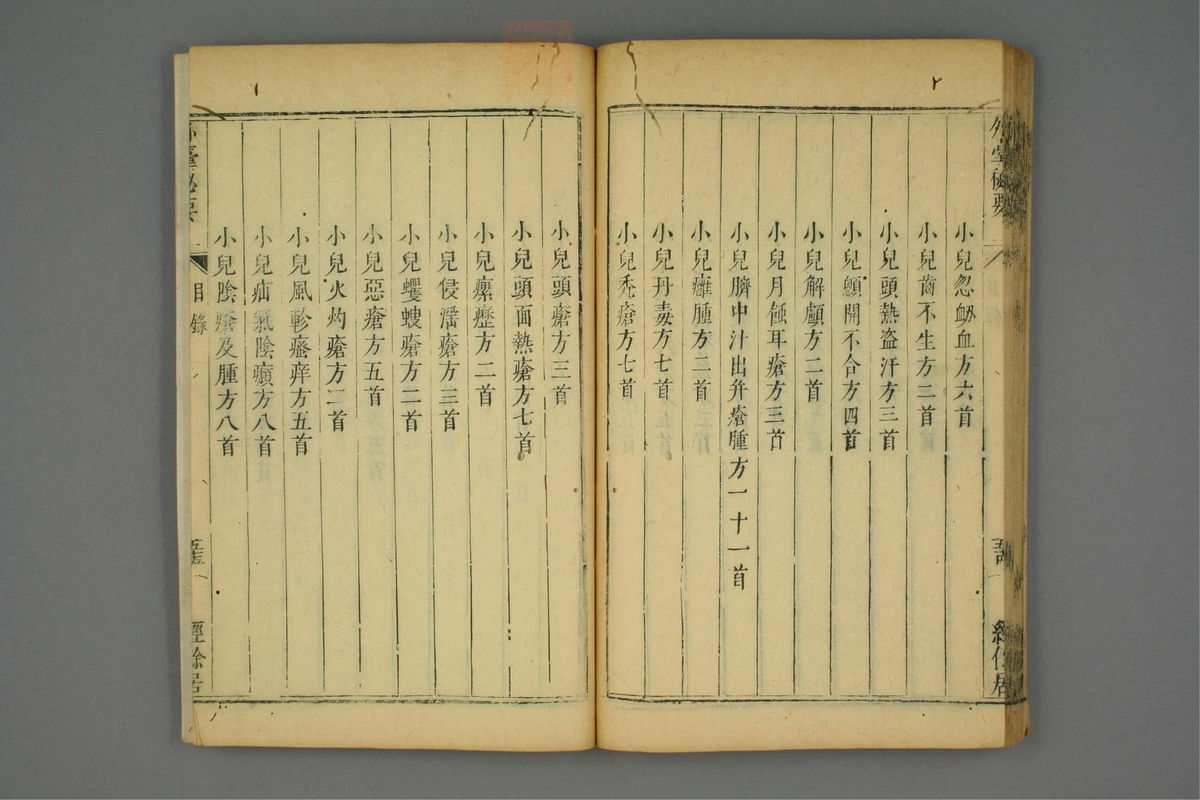 外臺秘要
小兒忽衂血方六首
小兒齒不生方二首
小兒頭熱盗汗方三首
小兒顖開不合方四首
小兒解顱方二首
小兒月蝕耳瘡方三首
小兒臍中汁出并瘡腫方一十一首
小兒癰腫方二首
小兒丹毒方七首
小兒禿瘡方七首
小兒頭瘡方三首
小兒頭面熱瘡方七首
小兒瘰癧方二首
小兒侵淫瘡方三首
小兒蠼螋瘡方二首
小兒惡瘡方五首
小兒火灼瘡方二首
小兒風軫瘙痒方五首
小兒疝氣陰㿗方八首
小兒陰瘡及腫方八首
外臺秘要
目錄
經餘居